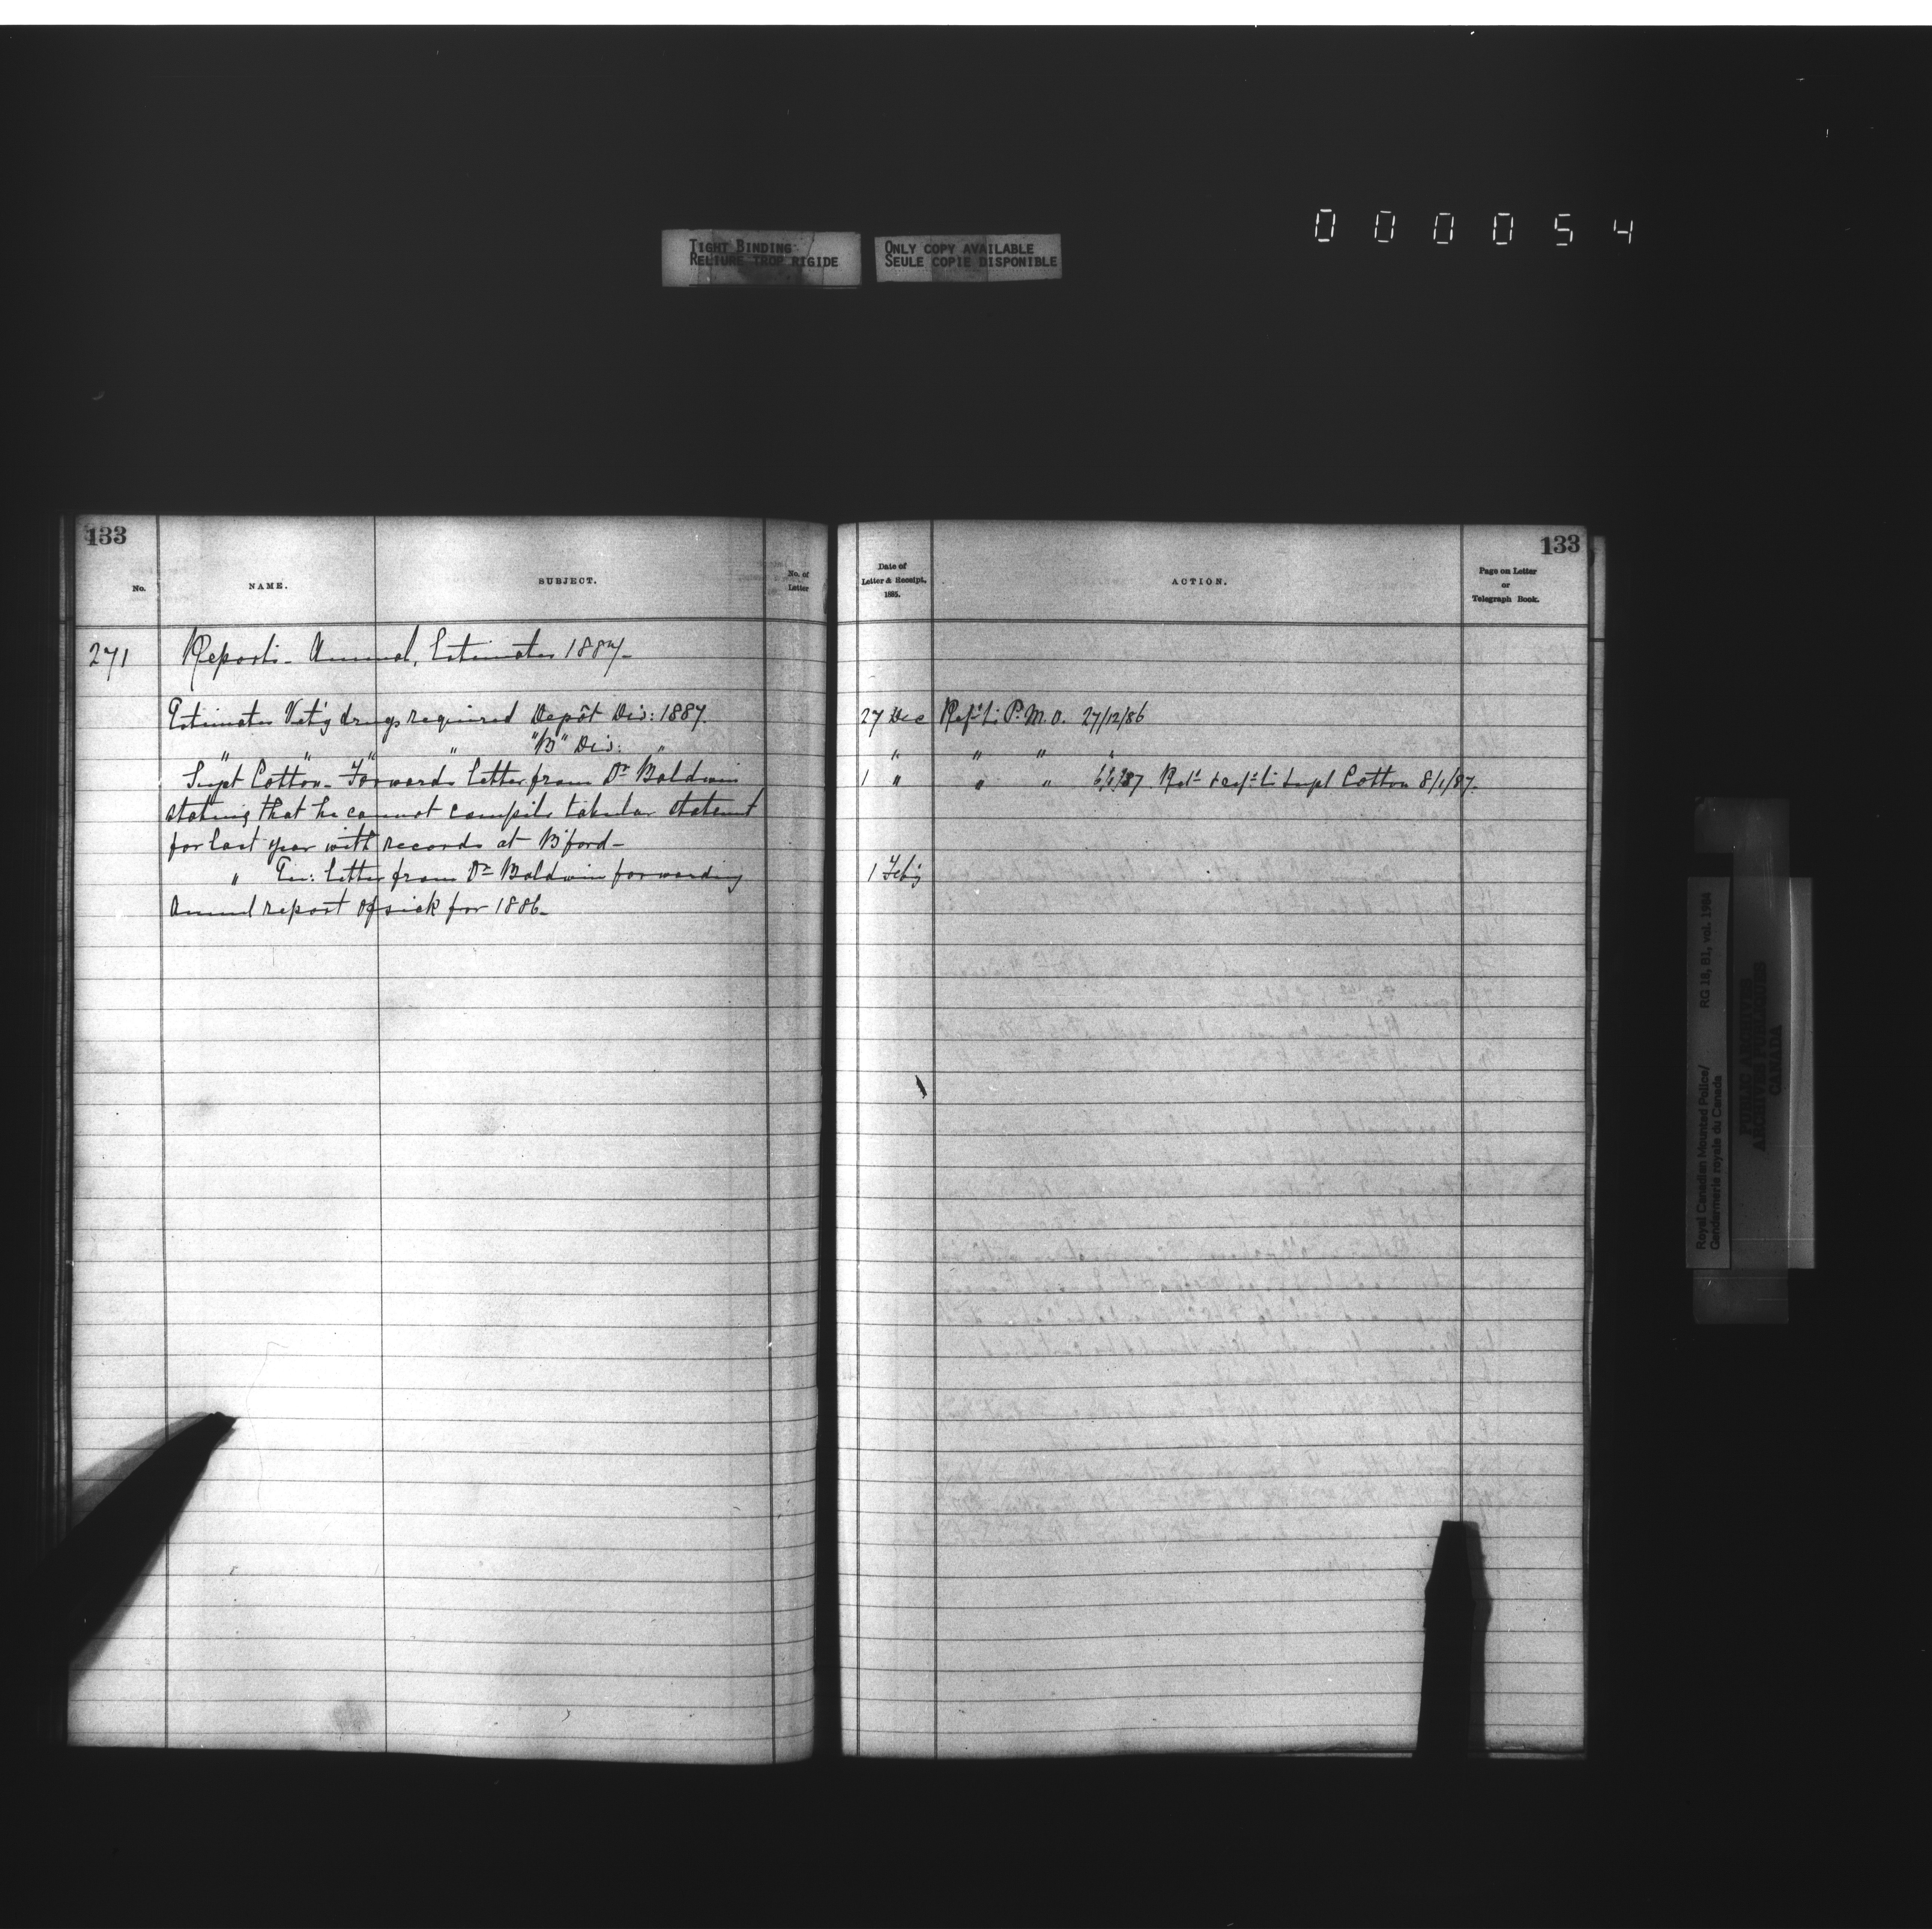 000054
TIGHT BINDING
RELIURE TROP RIGIDE
ONLY COPY AVAILABLE
SEULE COPIE DISPONIBLE
133
No.
NAME.
SUBJECT.
No. of
Letter
271 Reports - Annual, Estimates 1887 -
Estimates Vet'y drugs required Depôt Div: 1887.
" " " " "B" Div: "
Supt Cotton - Forwards letter from Dr Baldwin
stating that he cannot compile tabular statement
for last year with records at B'ford -
" En: letter from Dr Baldwin forwarding
Annual report of sick for 1886 -
133
Date of
Letter & Receipt.
1885.
ACTION.
Page on Letter
or
Telegraph Book.
27 Dec Ref'd to P.M.O. 27/12/86
" " " "
1 " " " 6/1/87 Ret'd & ref'd to Supt Cotton 8/1/87.
1 Feb'y
Royal Canadian Mounted Police/
Gendarmerie royale du Canada
RG 18, B1, vol. 1984
PUBLIC ARCHIVES
ARCHIVES PUBLIQUES
CANADA